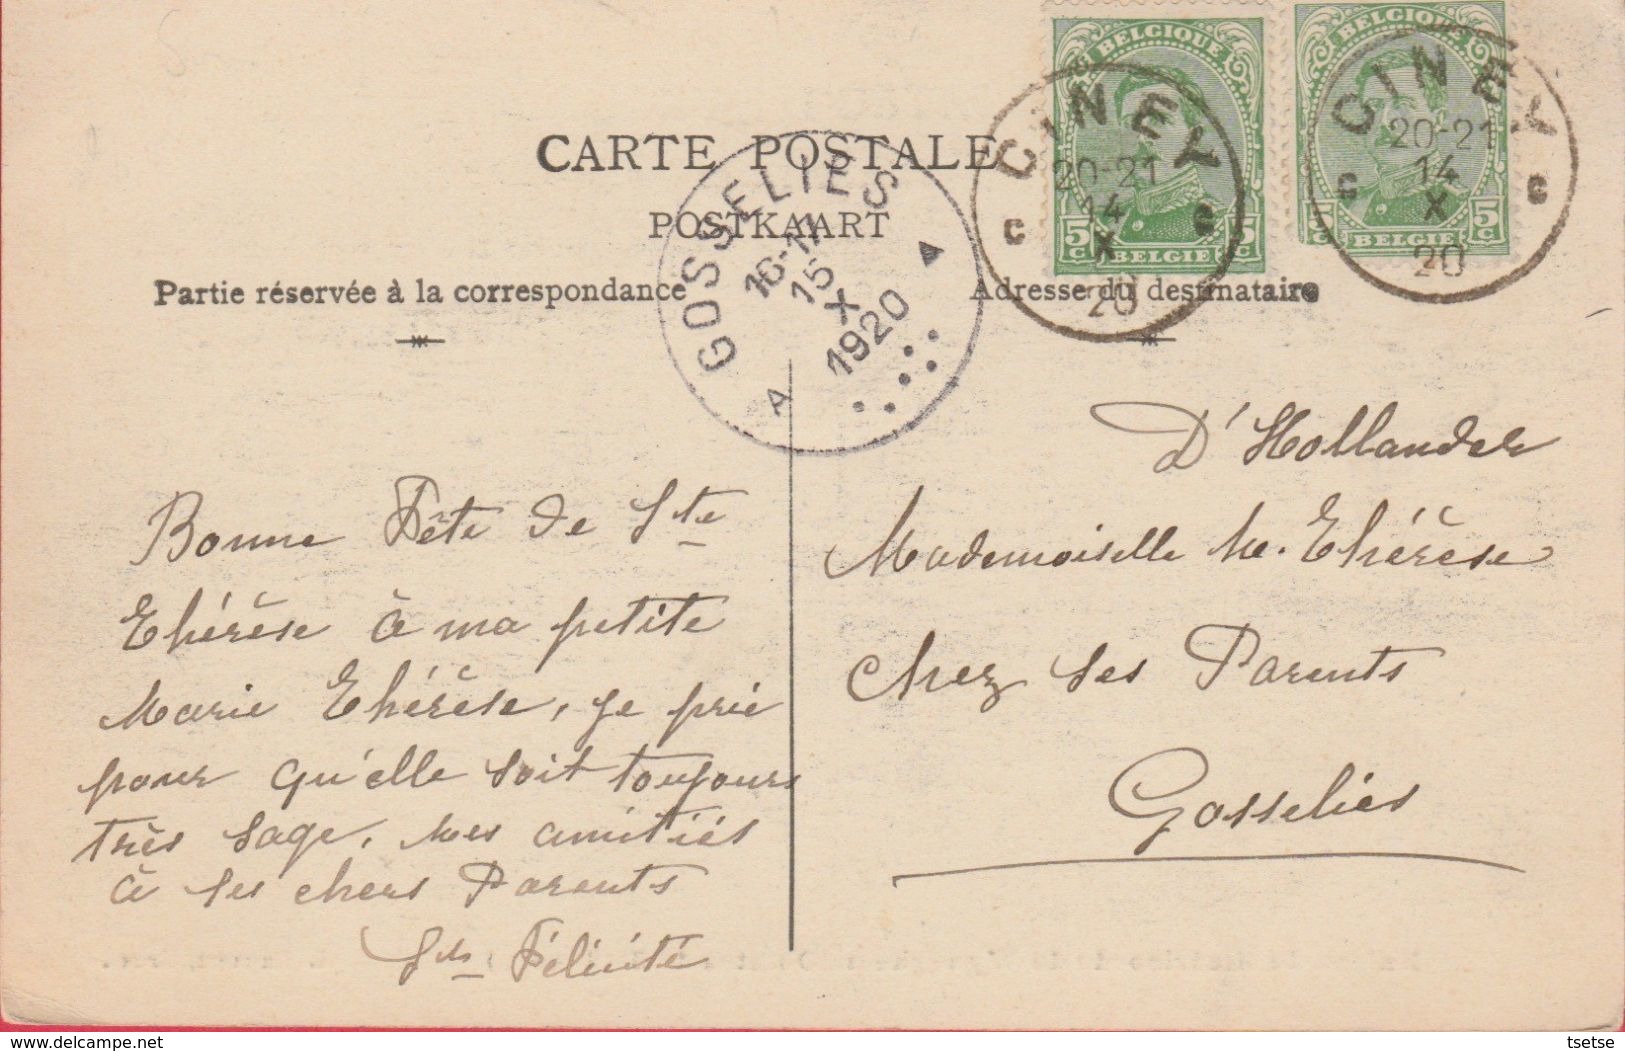 BELGIQUE
BELGIQUE
5 C BELGIE 5 C
5 C BELGIE 5 C
CINEY
20-21
14
X
20
C C
CINEY
20-21
14
X
20
C C
CARTE POSTALE
POSTKAART
GOSSELIES
16-17
15
X
1920
A
Partie réservée à la correspondance
Adresse du destinataire
Bonne Fête de Ste
Thérèse à ma petite
Marie Thérèse, je prie
pour qu'elle soit toujours
très sage, mes amitiés
à ses chers Parents
Félicité
D'Hollander
Mademoiselle M. Thérèse
Chez ses Parents
Gosselies
www.delcampe.net
tsetse